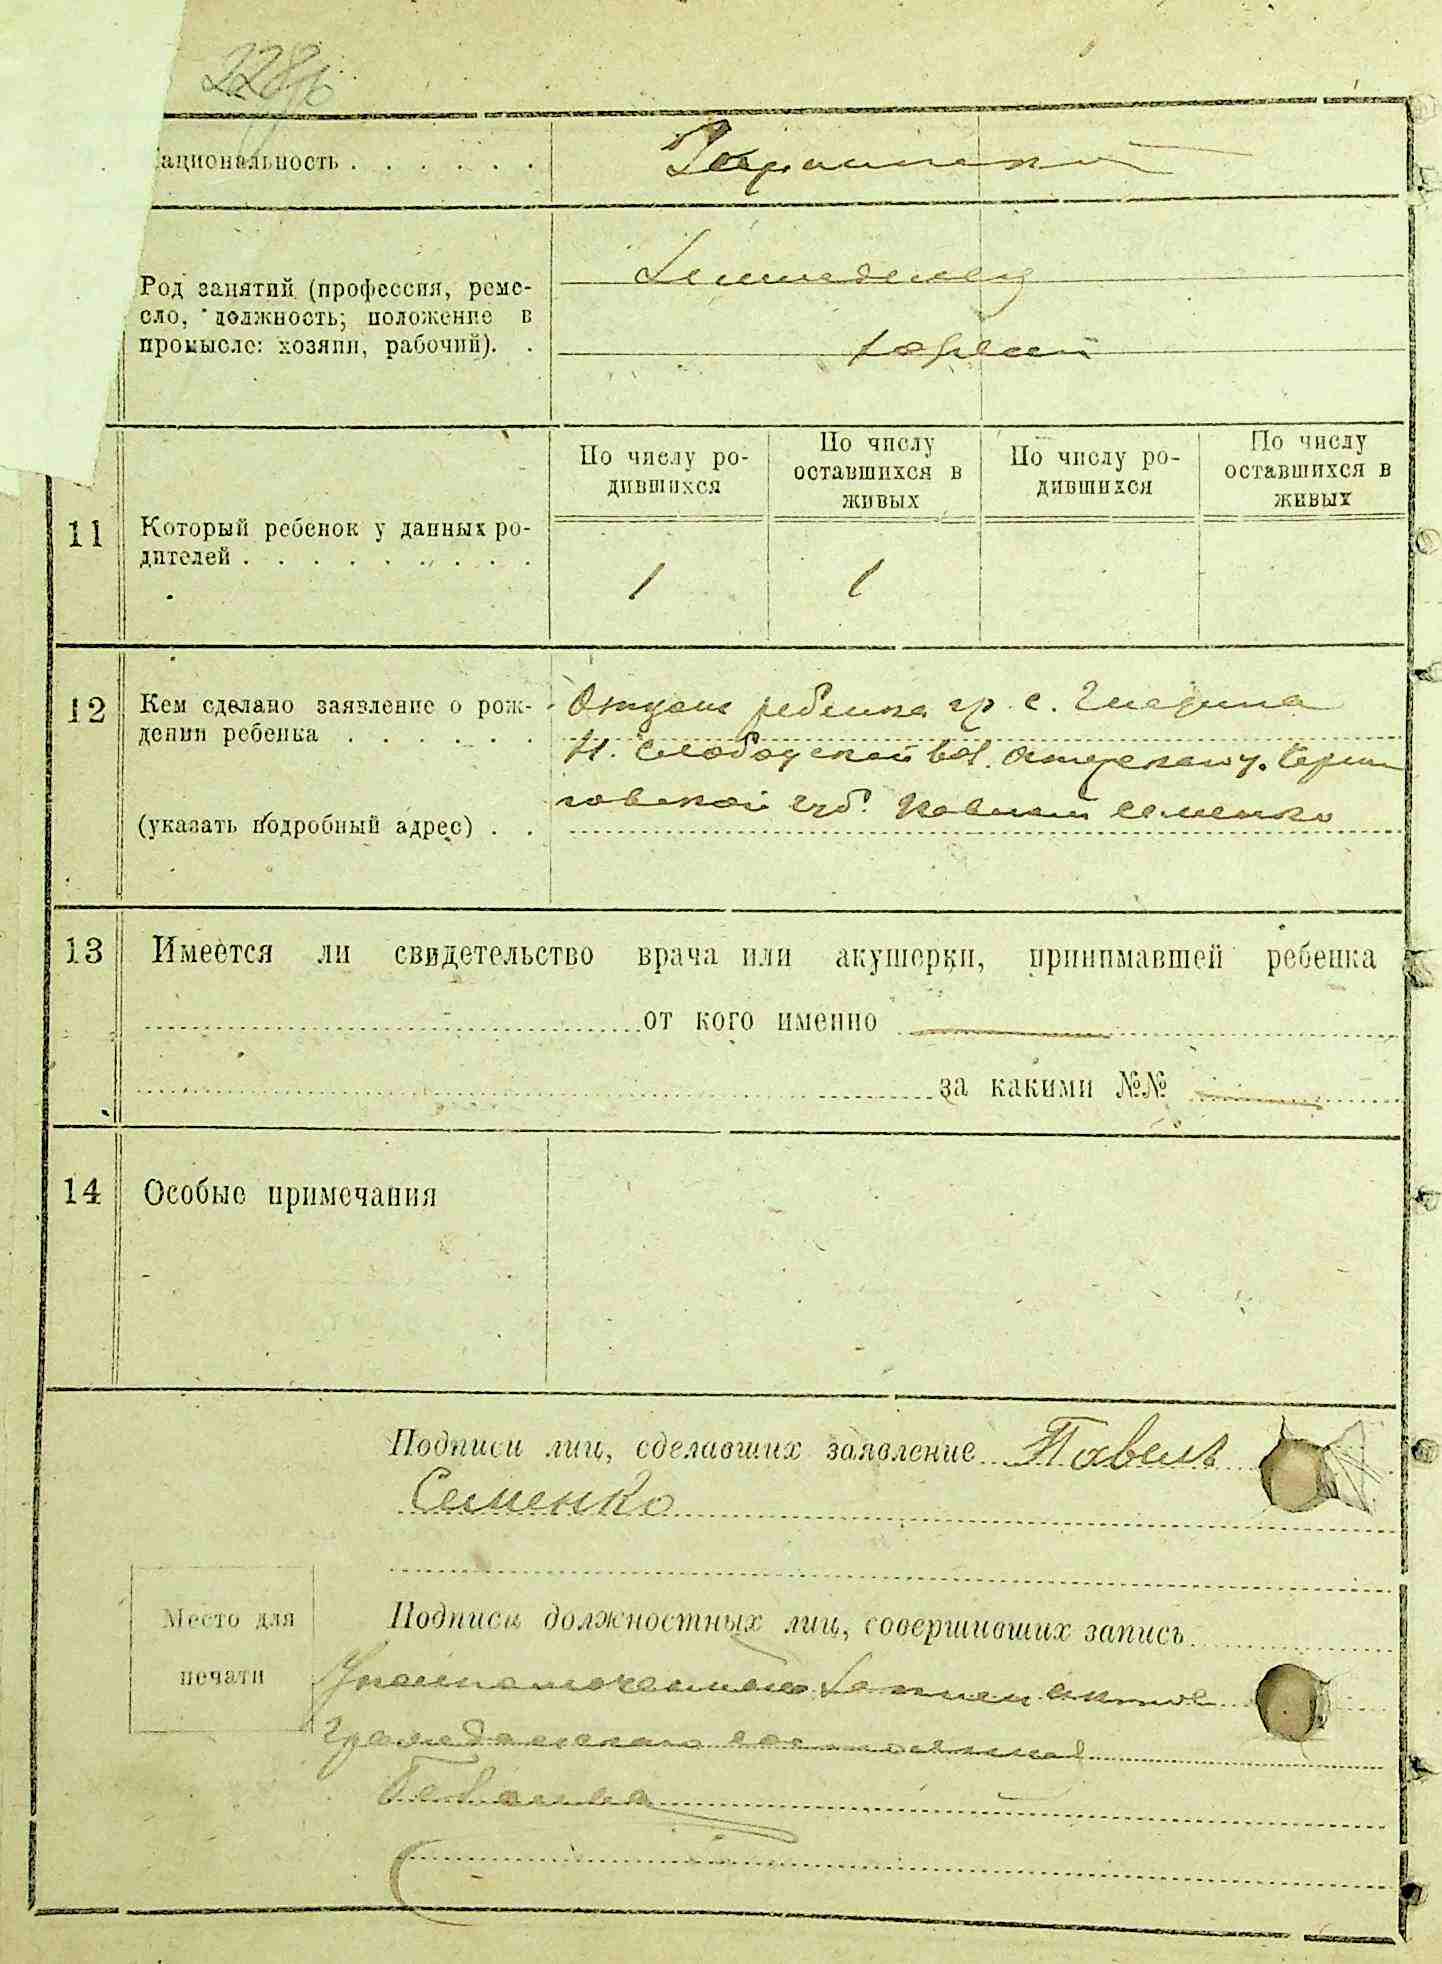 228
ациональность . . . . . .
Род занятий (профессия, реме-
сло, должность; положение в
промысле: хозяин, рабочий). .
Земледелец
По числу ро-
дившихся
По числу
оставшихся в
живых
По числу ро-
дившихся
По числу
оставшихся в
живых
11
Который ребенок у данных ро-
дителей . . . . . . . . .
1 1
12
Кем сделано заявление о рож-
дении ребенка . . . . . .
(указать подробный адрес) . .
Отцом ребенка гр. с. Гнедина
Н. Слободской вол. Остерского у. Черни
говской губ. Павлом Семенко
13
Имеется ли свидетельство врача или акушерки, принимавшей ребенка
от кого именно
за какими №№
14
Особые примечания
Подписи лиц, сделавших заявление Павелъ
Семенко
Место для
печати
Подписи должностных лиц, совершивших запись
Уполномоченный Записи актов
Гражданского состояния